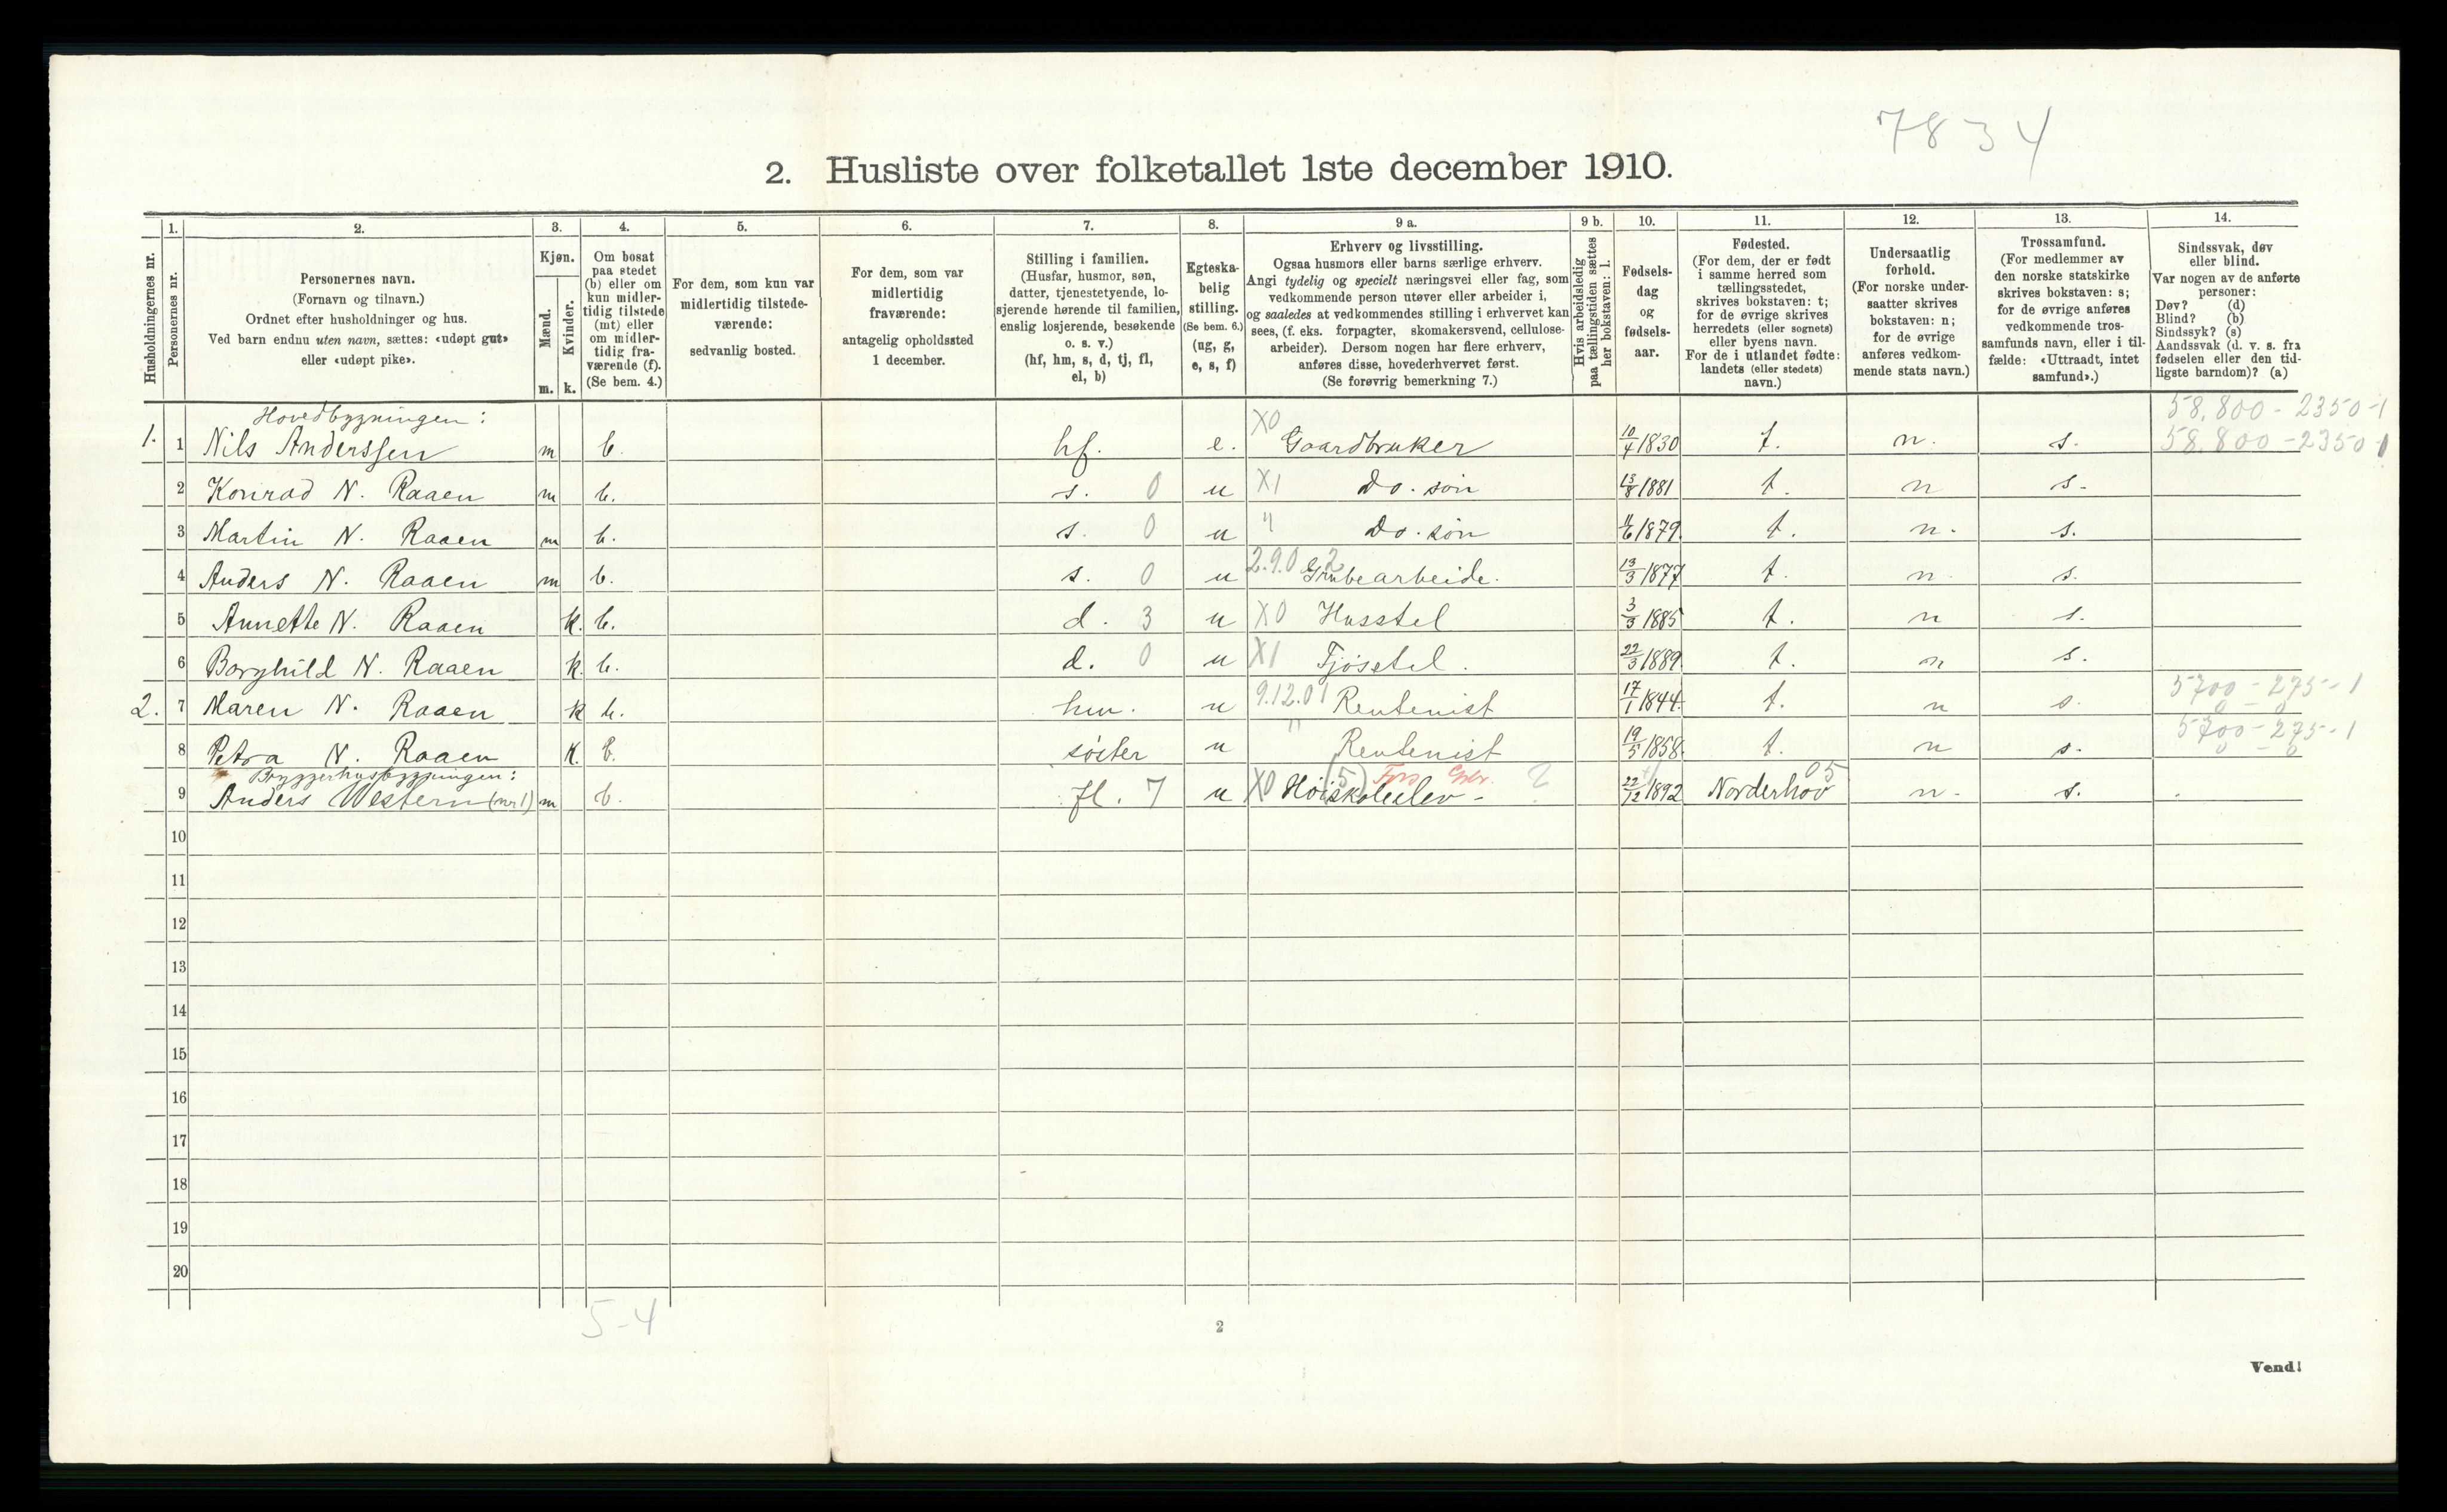 7834
2. Husliste over folketallet 1ste december 1910.
Husholdningernes nr.
1.
Personernes nr.
2.
Personernes navn.
(Fornavn og tilnavn.)
Ordnet efter husholdninger og hus.
Ved barn endnu uten navn, sættes: «udøpt gut»
eller «udøpt pike».
3.
Kjøn.
Mænd.
m.
Kvinder.
k.
4.
Om bosat
paa stedet
(b) eller om
kun midler-
tidig tilstede
(mt) eller
om midler-
tidig fra-
værende (f).
(Se bem. 4.)
5.
For dem, som kun var
midlertidig tilstede-
værende:
sedvanlig bosted.
6.
For dem, som var
midlertidig
fraværende:
antagelig opholdssted
1 december.
7.
Stilling i familien.
(Husfar, husmor, søn,
datter, tjenestetyende, lo-
sjerende hørende til familien,
enslig losjerende, besøkende
o. s. v.)
(hf, hm, s, d, tj, fl,
el, b)
8.
Egteska-
belig
stilling.
(Se bem. 6.)
(ug, g,
e, s, f)
9 a.
Erhverv og livsstilling.
Ogsaa husmors eller barns særlige erhverv.
Angi tydelig og specielt næringsvei eller fag, som
vedkommende person utøver eller arbeider i,
og saaledes at vedkommendes stilling i erhvervet kan
sees, (f. eks. forpagter, skomakersvend, cellulose-
arbeider). Dersom nogen har flere erhverv,
anføres disse, hovederhvervet først.
(Se forøvrig bemerkning 7.)
9 b.
Hvis arbeidsledig
paa tællingstiden sættes
her bokstaven: l.
10.
Fødsels-
dag
og
fødsels-
aar.
11.
Fødested.
(For dem, der er født
i samme herred som
tællingsstedet,
skrives bokstaven: t;
for de øvrige skrives
herredets (eller sognets)
eller byens navn.
For de i utlandet fødte:
landets (eller stedets)
navn.)
12.
Undersaatlig
forhold.
(For norske under-
saatter skrives
bokstaven: n;
for de øvrige
anføres vedkom-
mende stats navn.)
13.
Trossamfund.
(For medlemmer av
den norske statskirke
skrives bokstaven: s;
for de øvrige anføres
vedkommende tros-
samfunds navn, eller i til-
fælde: «Uttraadt, intet
samfund».)
14.
Sindssvak, døv
eller blind.
Var nogen av de anførte
personer:
Døv? (d)
Blind? (b)
Sindssyk? (s)
Aandssvak (d. v. s. fra
fødselen eller den tid-
ligste barndom)? (a)
Hovedbygningen: X0 58.800 - 2350-1
1. 1 Nils Anderssen m b. hf. e. Gaardbruker 10/4 1830 t. n. s. 58.800-2350-1
2 Konrad N. Raaen m b. s. 0 u X1 Do. søn 13/8 1881 t. n s.
3 Martin N. Raaen m b. s. 0 u " Do. søn 11/6 1879. t. n. s.
4 Anders N. Raaen m b. s. 0 u 2.9.0 Grubearbeide. 13/3 1877 t. n. s.
5 Annette N. Raaen k. b. d. 3 u X0 Husstel 3/3 1885 t. n s.
6 Borghild N. Raaen k. b. d. 0 u X1 Fjøsstel. 22/3 1889. t. n s.
2. 7 Maren N. Raaen k b. hm. u 9.12.01 Rentenist 17/1 1844. t. n s. 5700-275-1
8 Petra N. Raaen k. b. søster u " Rentenist 19/5 1858. t. n s. 5700-275-1
Bryggerhusbygningen: (5) 05
9 Anders Western (nr 1) m b. fl. 7 u X0 Høiskoleelev - ? 22/12 1892 Norderhov n. s.
10
11
12
13
14
15
16
17
18
19
20
5-4
2
Vend!